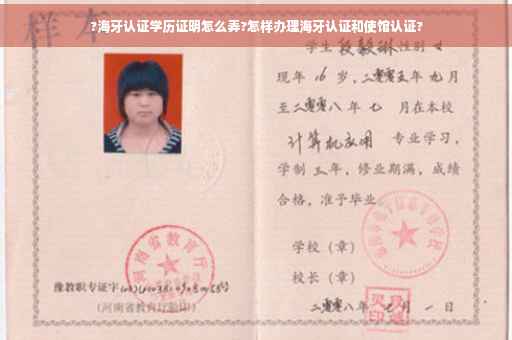 ?海牙认证学历证明怎么弄?怎样办理海牙认证和使馆认证?
样本
学生 段毅琳 性别 女
现年 16 岁，二零零五年 九月
至二零零八年 七 月在本校
计算机应用 专业学习，
学制 三年，修业期满，成绩
合格，准予毕业
学校（章）
校长（章）
二零零八年 七 月 一 日
河南省教育厅
豫教职专证字
（河南省教育厅验印）